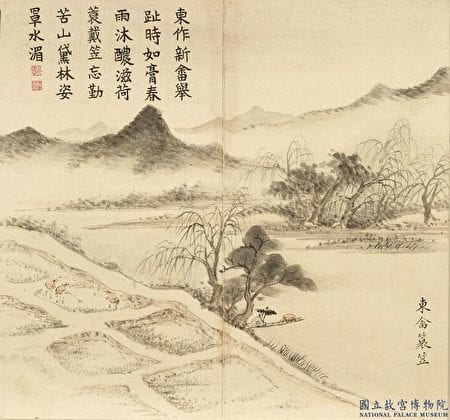 東作新畬舉
趾時如膏春
雨沐醲滋荷
蓑戴笠忘勤
苦山黛林姿
罩水湄
東畬蓑笠
國立故宮博物院
NATIONAL PALACE MUSEUM